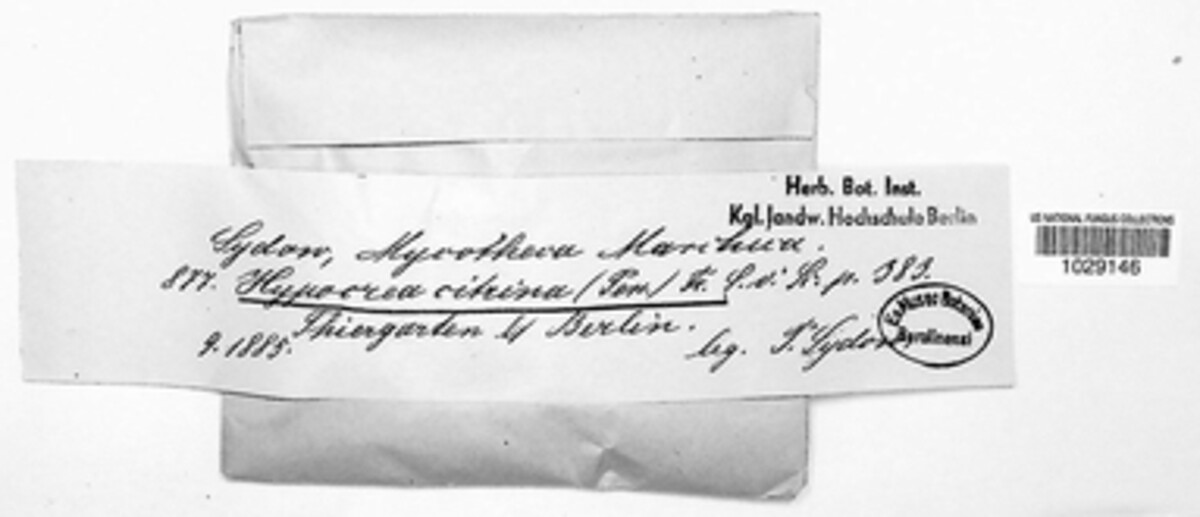 Herb. Bot. Inst.
Kgl. landw. Hochschule Berlin
Sydow, Mycotheca Marchica.
877. Hypocrea citrina (Pers.) Fr. p. 383.
Thiergarten b/ Berlin.
9. 1885.
leg. P. Sydow
Ex Museo Botanico
Berolinensi
US NATIONAL FUNGUS COLLECTIONS
1029146